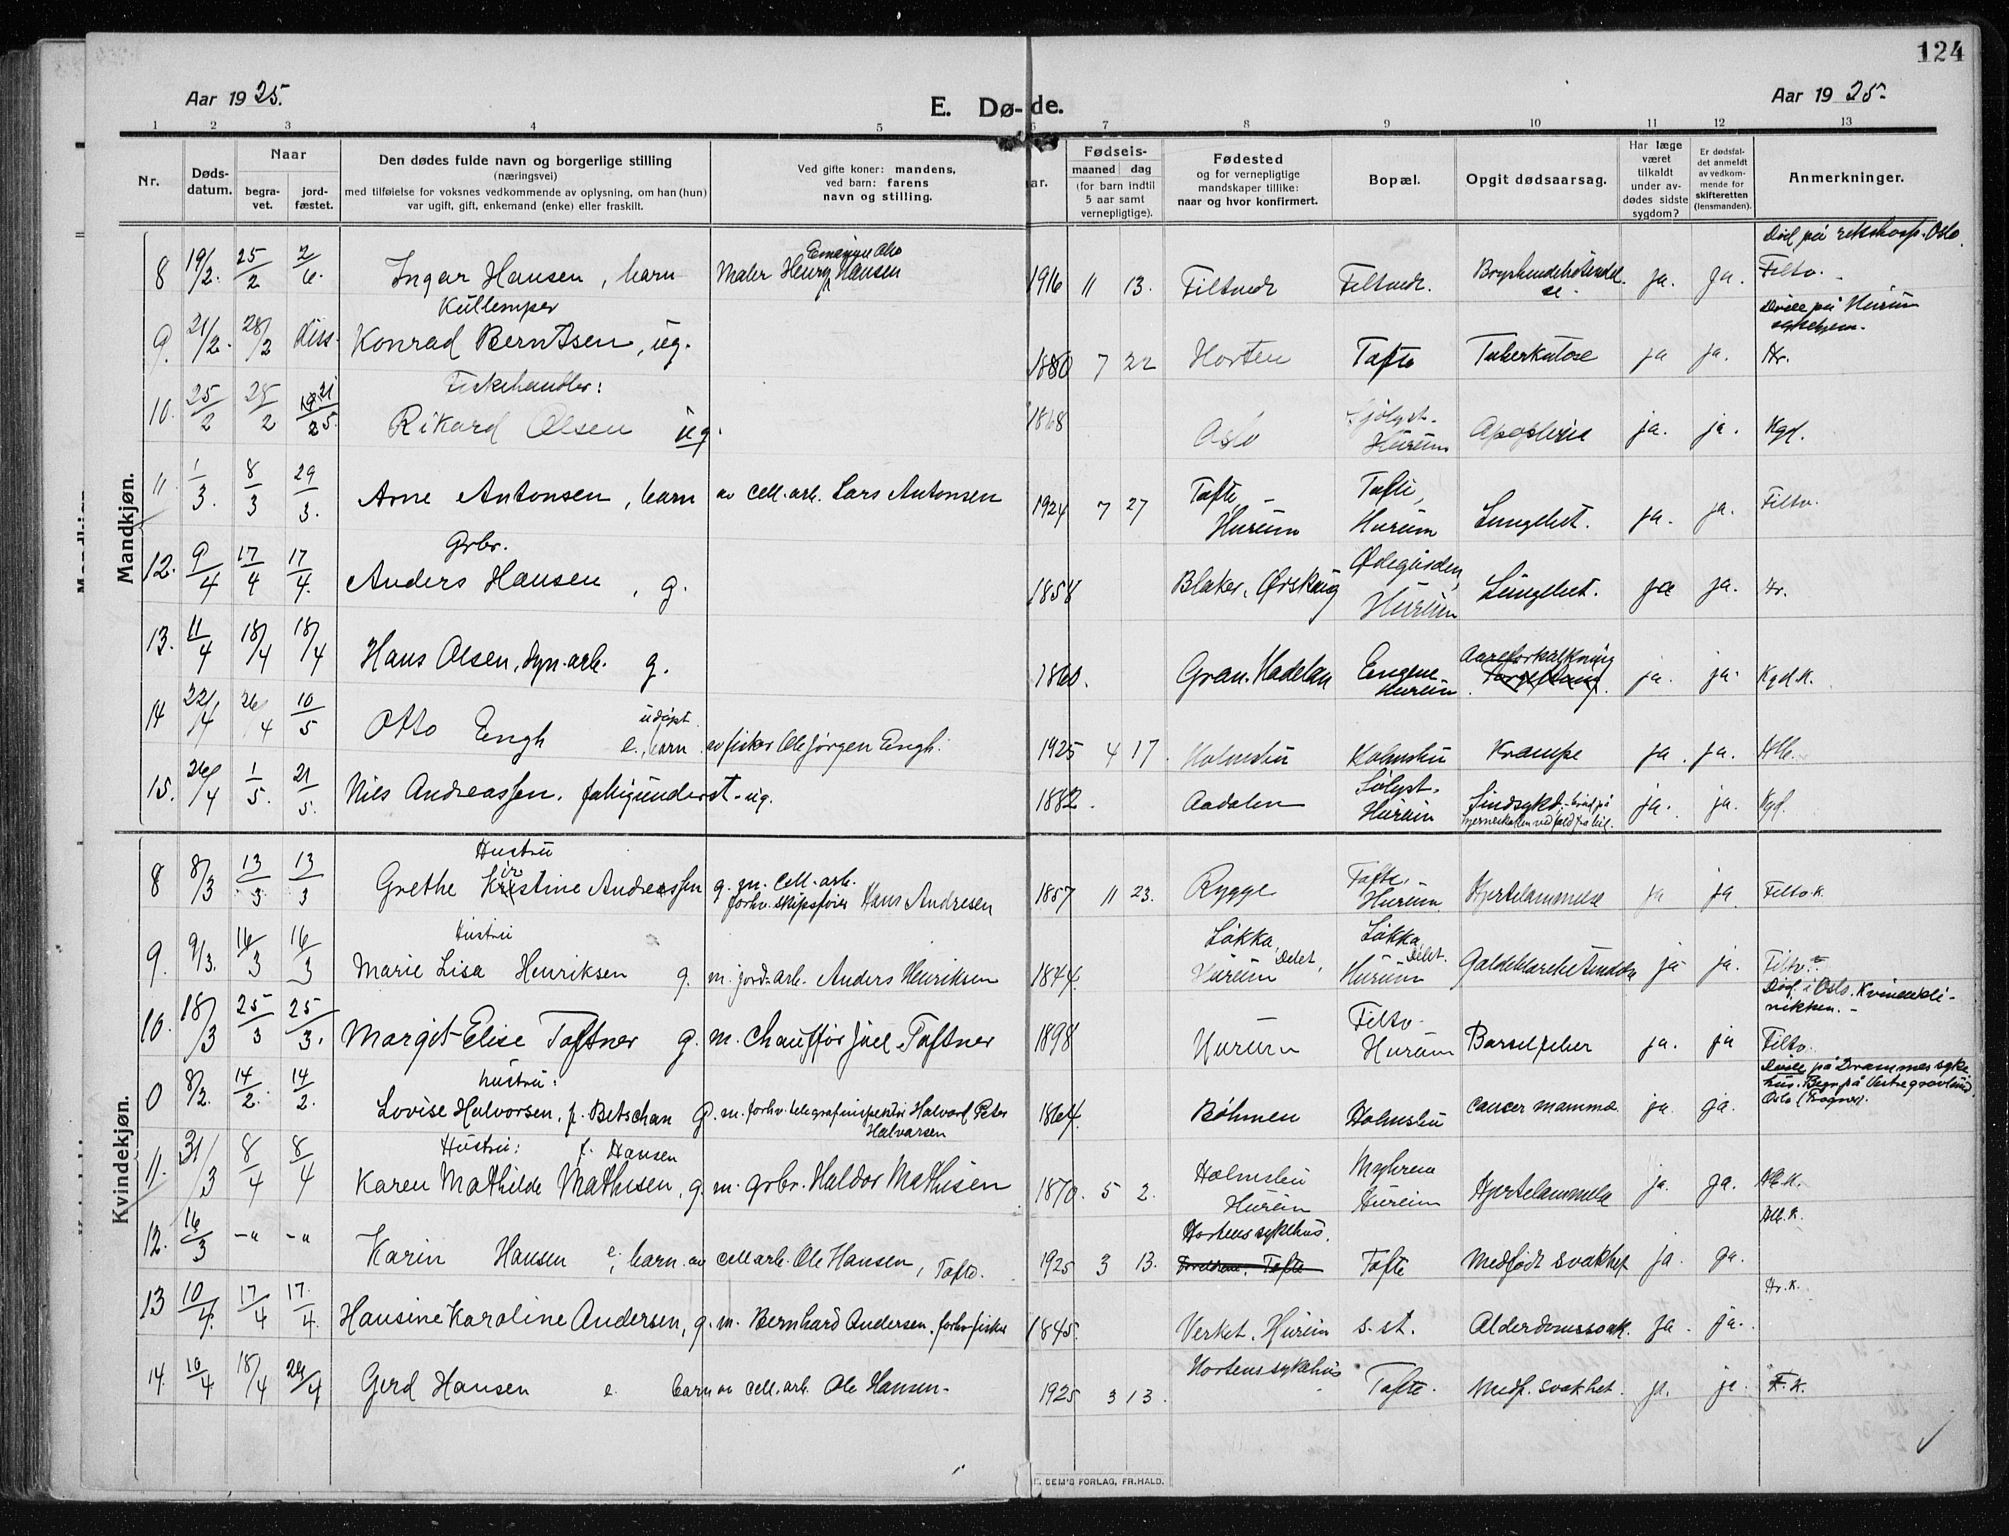 124
Aar 1925.
E. Dø- de.
Aar 1925.
1 2 3 4 5 6 7 8 9 10 11 12 13
Nr.
Døds-
datum.
Naar
begra-
vet.
jord-
fæstet.
Den dødes fulde navn og borgerlige stilling
(næringsvei)
med tilføielse for voksnes vedkommende av oplysning, om han (hun)
var ugift, gift, enkemand (enke) eller fraskilt.
Ved gifte koner: mandens,
ved barn: farens
navn og stilling.
ar.
Fødsels-
maaned dag
(for barn indtil
5 aar samt
vernepligtige).
Fødested
og for vernepligtige
mandskaper tillike:
naar og hvor konfirmert.
Bopæl.
Opgit dødsaarsag.
Har læge
været
tilkaldt
under av-
dødes sidste
sygdom?
Er dødsfal-
det anmeldt
av vedkom-
mende for
skifteretten
(lensmanden).
Anmerkninger.
Mandkjøn.
Død på rikshosp. Oslo.
8 19/2. 25/2 2/6. Ingar Hansen, barn Maler Henry Hansen 1916 11 13. Filtvedt Filtvedt. ja. ja. Filtv.
Døde på Hurum
sykehjem.
Kullemper
9. 21/2. 28/2 diss. Konrad Berntsen, ug. 1880 7 22 Horten Tofte Tuberkulose ja ja. Hr.
Fiskehandler:
10. 25/2 28/2 Rikard Olsen ug. 1868 Oslo Sjølyst. Hurum Apoplexia ja. ja. Kgd.
11. 1/3. 8/3 29/3. Arne Antonsen, barn av cell.arb. Lars Antonsen 1924 7 27 Tofte, Hurum Tofte, Hurum Lungebet. ja. ja. Filtv.
Grbr.
12. 9/4 17/4 17/4. Anders Hansen, g. 1858 Blaker, Ørskoug Ødegården, Hurum Lungebet. ja ja. Hr.
13. 11/4 18/4 18/4 Hans Olsen, dyn.arb. g. 1860. Gran, Hadelan Engene Hurum Aareforkalkning ja. ja. Kgd.K.
udøpt
14 22/4 26/4 10/5 Otto Engh e. barn av fisker Ole Jørgen Engh. 1925 4 17. Holmsbu Holmsbu Krampe ja. ja. Hb.
15. 26/4 1/5. 21/5. Nils Andreassen, fattigunderst. ug. 1882. Aadalen Sølyst. Hurum Sindsykd. brud på
hjerneskallen ved fald fra bil. ja. ja. Kgd.
Kvindekjøn.
Hustru
8 8/3 13/3 13/3 Grethe Kristine Andreassen g. m. cell.arb.
forhv. skipsfører Hans Andresen 1857 11 23. Rygge Tofte, Hurum. Hjertelammelse ja ja Filtv.K.
Hustru
9. 9/3. 16/3 16/3 Marie Lisa Henriksen g. m. jord.arb. Anders Henriksen 1874. Løkka, Delet, Hurum Løkka, Delet. Hurum ja ja. Filtv.
Død i Oslo. Kvindekli-
nikken.
10. 18/3 25/3 25/3. Margit Elise Toftner g. m. Chauffør Juel Toftner 1898 Hurum Filtv. Hurum Barselfeber ja. ja Filtv.
Døde på Drammens syke
hus. Begr. på Vestre gravlund,
Oslo (Frogner).
hustru:
0 8/2. 14/2. 14/2. Lovise Halvorsen, f. Betschan g. m. forhv. telegrafinspektør Halvard Peter
Halvorsen 1864. Bøhmen Holmsbu Cancer mammæ ja. ja.
Hustru: f. Hansen
11. 31/3 8/4 8/4 Karen Mathilde Mathisen, g. m. grbr. Haldor Mathisen 1870. 5 2. Holmsbu Hurum Myhrene Hurum Hjertelammelse ja. ja. Hb.K.
Hb.K.
Hortens sykehus.
12. 16/3 -"- -"- Karin Hansen e, barn av cell.arb. Ole Hansen, Tofte. 1925 3 13. Tofte Medfødt svakhet ja. ja.
Hr.K.
13 10/4. 17/4 17/4. Hansine Karoline Andersen, g. m. Bernhard Andersen, forhv. fisker 1845. Verket, Hurum s. st. Alderdomssvak. ja. ja.
14. 10/4. 18/4 24/4 Gerd Hansen e. barn av cell.arb. Ole Hansen. 1925 3 13. Hortens sykehus Tofte. Medf. svakhet. ja. ja. F.K.
DEM'S FORLAG, FR.HALD.